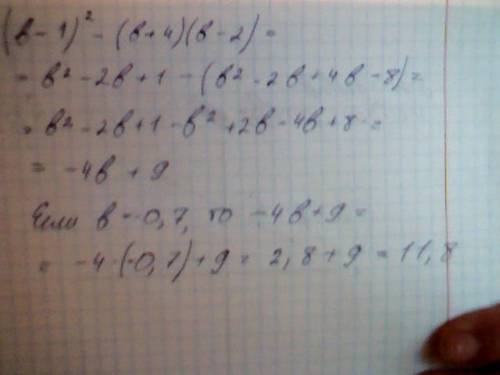 (в-1)² - (в+4)(в-2)=
= в² - 2в + 1 - (в² - 2в + 4в - 8)=
= в² - 2в + 1 - в² + 2в - 4в + 8 =
= -4в + 9
Если в = -0,7, то -4в + 9 =
= -4·(-0,7) + 9 = 2,8 + 9 = 11,8